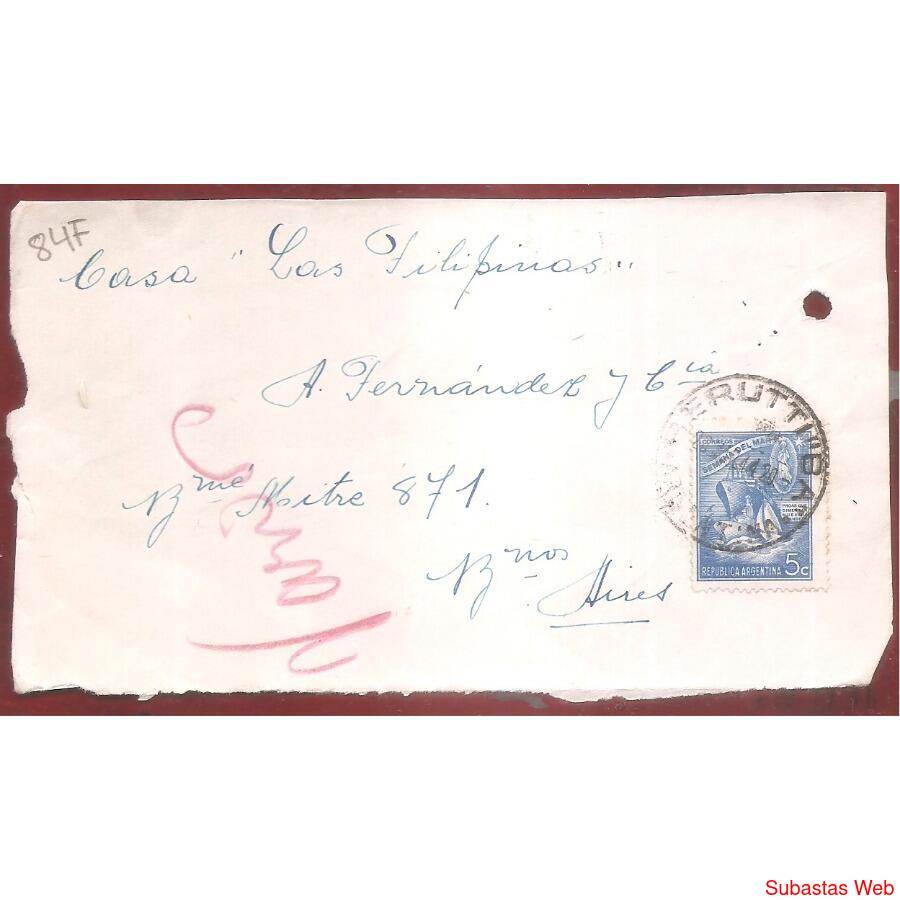 84F
Casa "Las Filipinas"
A. Fernández y Cía
Bmé Mitre 871.
Bnos Aires
BERUTTI
BA
CORREOS
SEMANA DEL MAR
REPUBLICA ARGENTINA 5c
Subastas Web